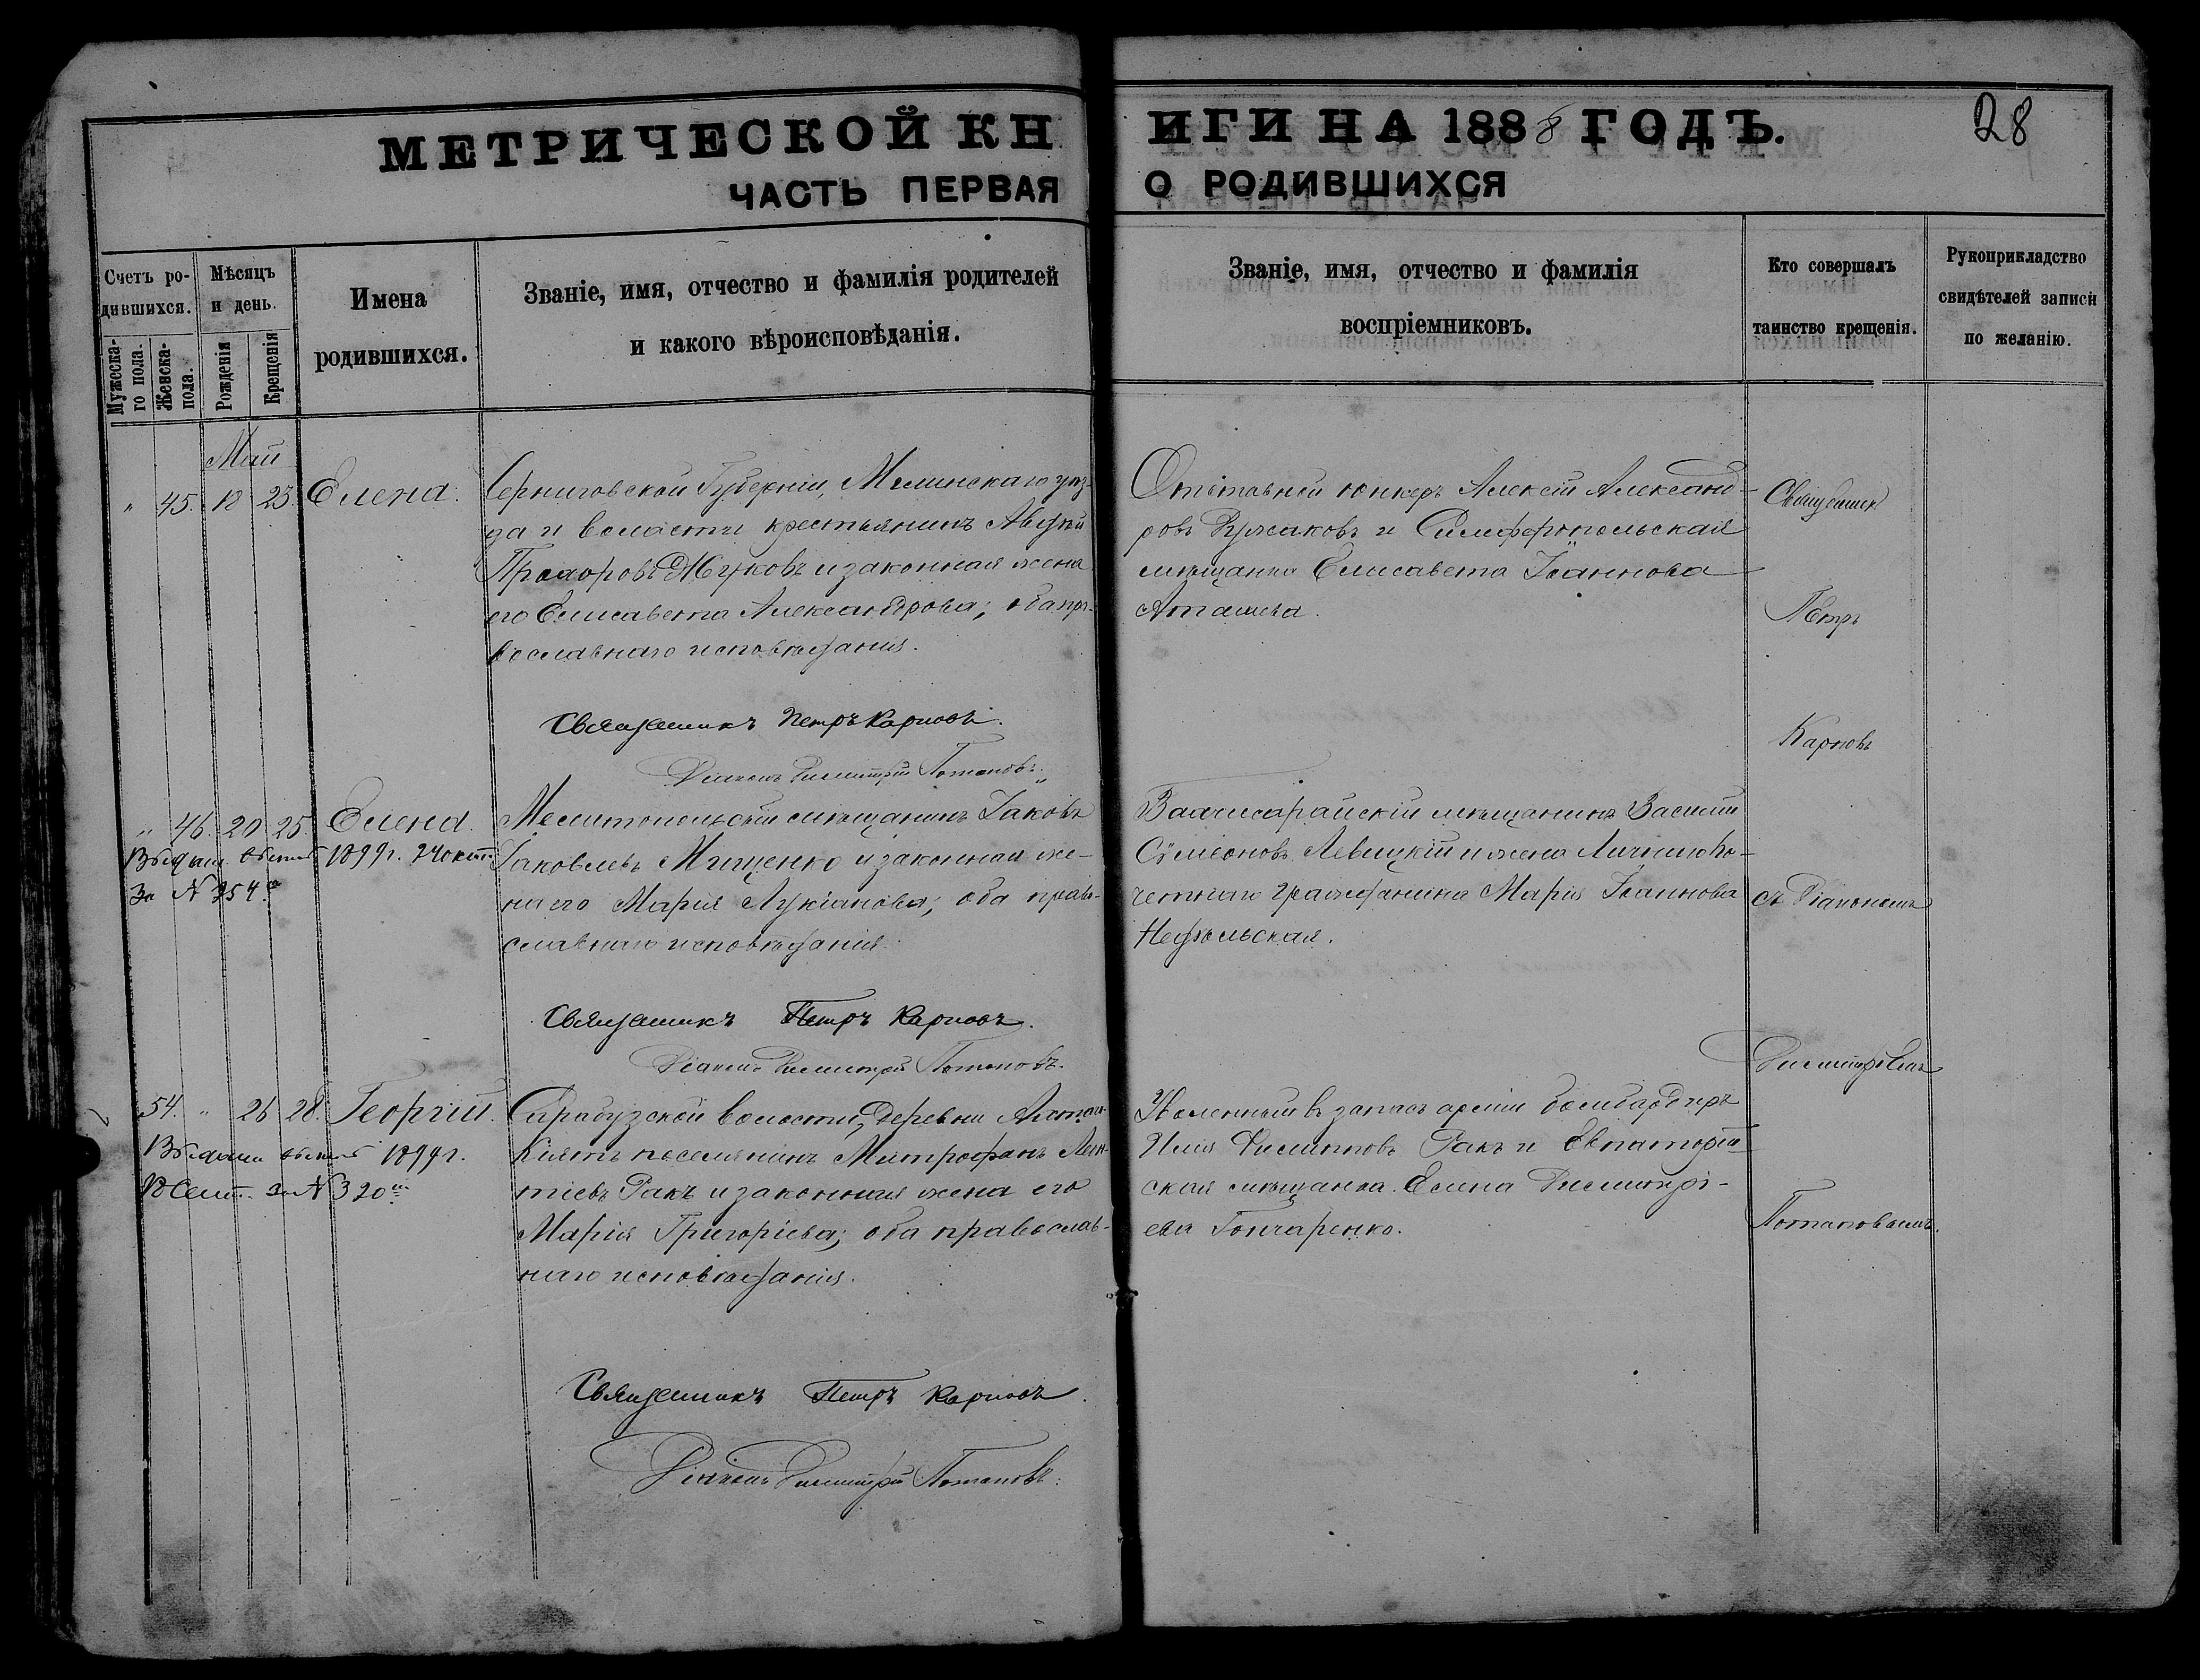 МЕТРИЧЕСКОЙ КНИГИ НА 1888 ГОДЪ.
28
ЧАСТЬ ПЕРВАЯ О РОДИВШИХСЯ
Счетъ ро-
дившихся.
Мужеска-
го пола.
Женска-
пола.
Мѣсяцъ
и день.
Рожденія
Крещенія
Имена
родившихся.
Званіе, имя, отчество и фамилія родителей
и какого вѣроисповѣданія.
Званіе, имя, отчество и фамилія
воспріемниковъ.
Кто совершалъ
таинство крещенія.
Рукоприкладство
свидѣтелей записи
по желанію.
Май
" 45. 18 25. Елена.
Черниговской Губерніи, Мглинскаго уѣз-
да и волости крестьянинъ
Прохоровъ Жуковъ и законная жена
его Елисавета Александрова; оба пра-
вославнаго исповѣданія.
Священникъ Петръ Карповъ.
Діаконъ Димитрій Потаповъ.
Отставной юнкеръ Алексій Александ-
ровъ и Симферопольская
мѣщанка Елисавета Іоаннова
Священникъ
Петръ
Карповъ
" 46. 20 25. Елена.
Выдан 1899 г. 24 окт.
За № 354
Мелитопольскій мѣщанинъ Іаковъ
Іаковлевъ Мищенко и законная же-
на его Марія Лукіанова; оба право-
славнаго исповѣданія.
Священникъ Петръ Карповъ.
Діаконъ Димитрій Потаповъ.
Бахчисарайскій мѣщанинъ Василій
Сѵмеоновъ Левицкій и жена Личнаго По-
четнаго гражданина Марія Іоаннова
съ Діакономъ
Димитріемъ
54. " 26 28. Георгій.
Выдан 1899 г.
18 Сент. за № 320
Сарабузской волости, деревни
Кіятъ поселянинъ Митрофанъ
тіевъ Ракъ и законная жена его
Марія Григоріева; оба православ-
наго исповѣданія.
Священникъ Петръ Карповъ.
Діаконъ Димитрій Потаповъ.
Уволенный въ запасъ арміи бомбардиръ
Илія Филипповъ Ракъ и Евпаторій-
ская мѣщанка Елена Димитрі-
ева Гончаренко.
Потаповымъ.